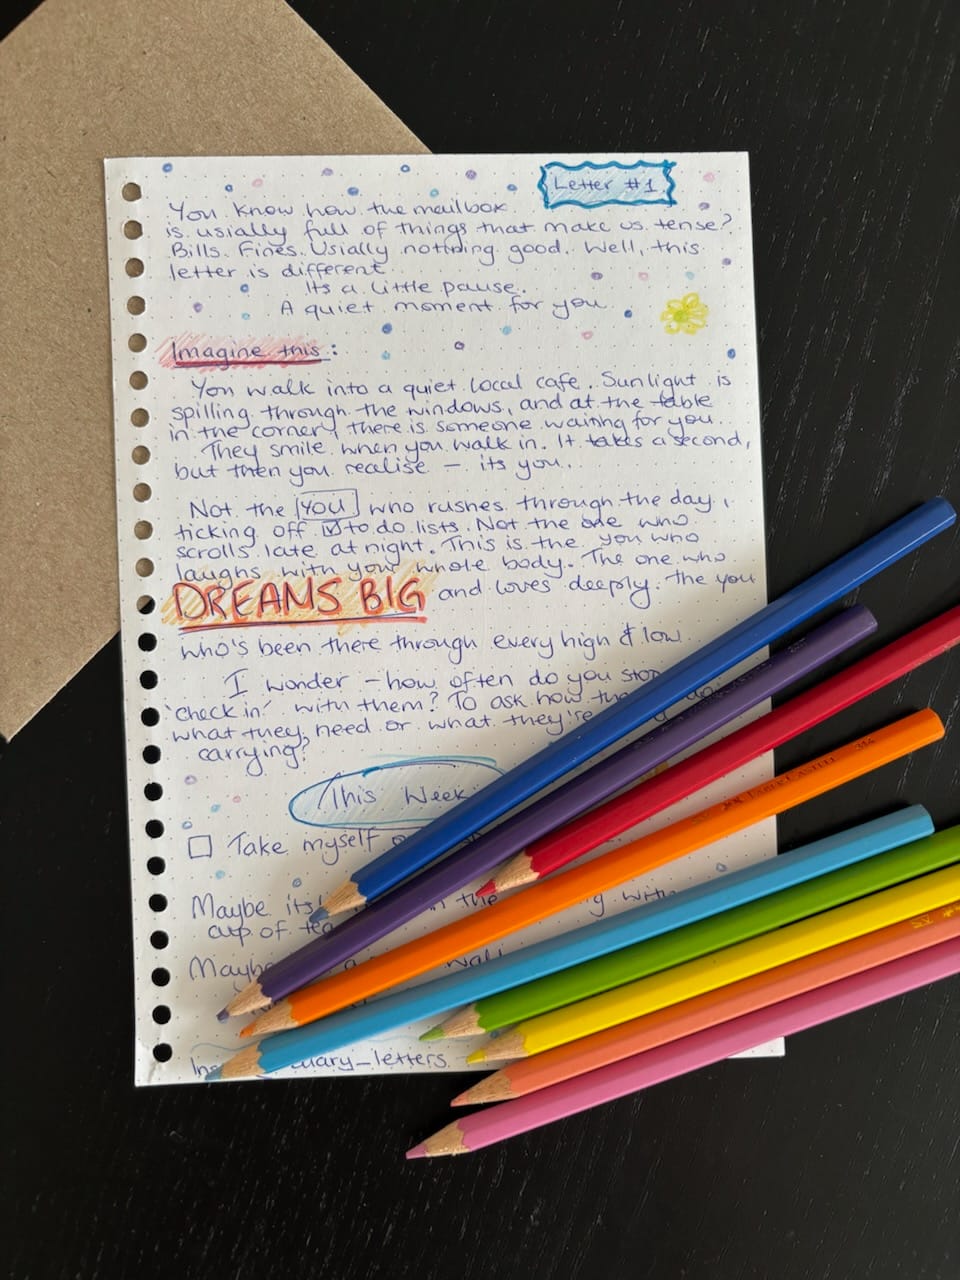 Letter #1
You know how the mailbox
is usially full of things that make us tense?
Bills. Fines. Usially nothing good. Well, this
letter is different.
Its a little pause.
A quiet moment for you.
Imagine this:
You walk into a quiet local cafe. Sunlight is
spilling through the windows, and at the table
in the corner, there is someone waiting for you.
They smile when you walk in. It takes a second,
but then you realise – its you.
Not the YOU who rushes through the day,
ticking off ☑ to do lists. Not the one who
scrolls late at night. This is the you who
laughs with your whole body. The one who
DREAMS BIG and loves deeply. The you
who's been there through every high & low.
I wonder – how often do you stop
'check in' with them? To ask how
what they need or what they're
carrying?
This Week
☐ Take myself
Maybe its the with
cup of tea
Maybe a
uary_letters
FABER-CASTELL